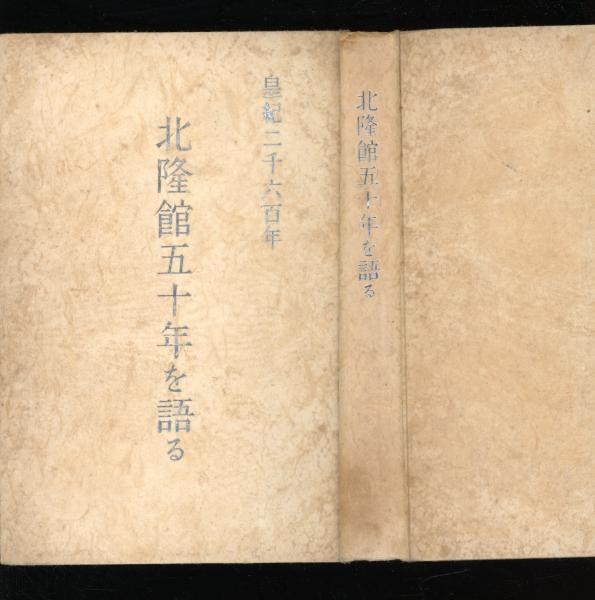 皇紀二千六百年
北隆館五十年を語る
北隆館五十年を語る